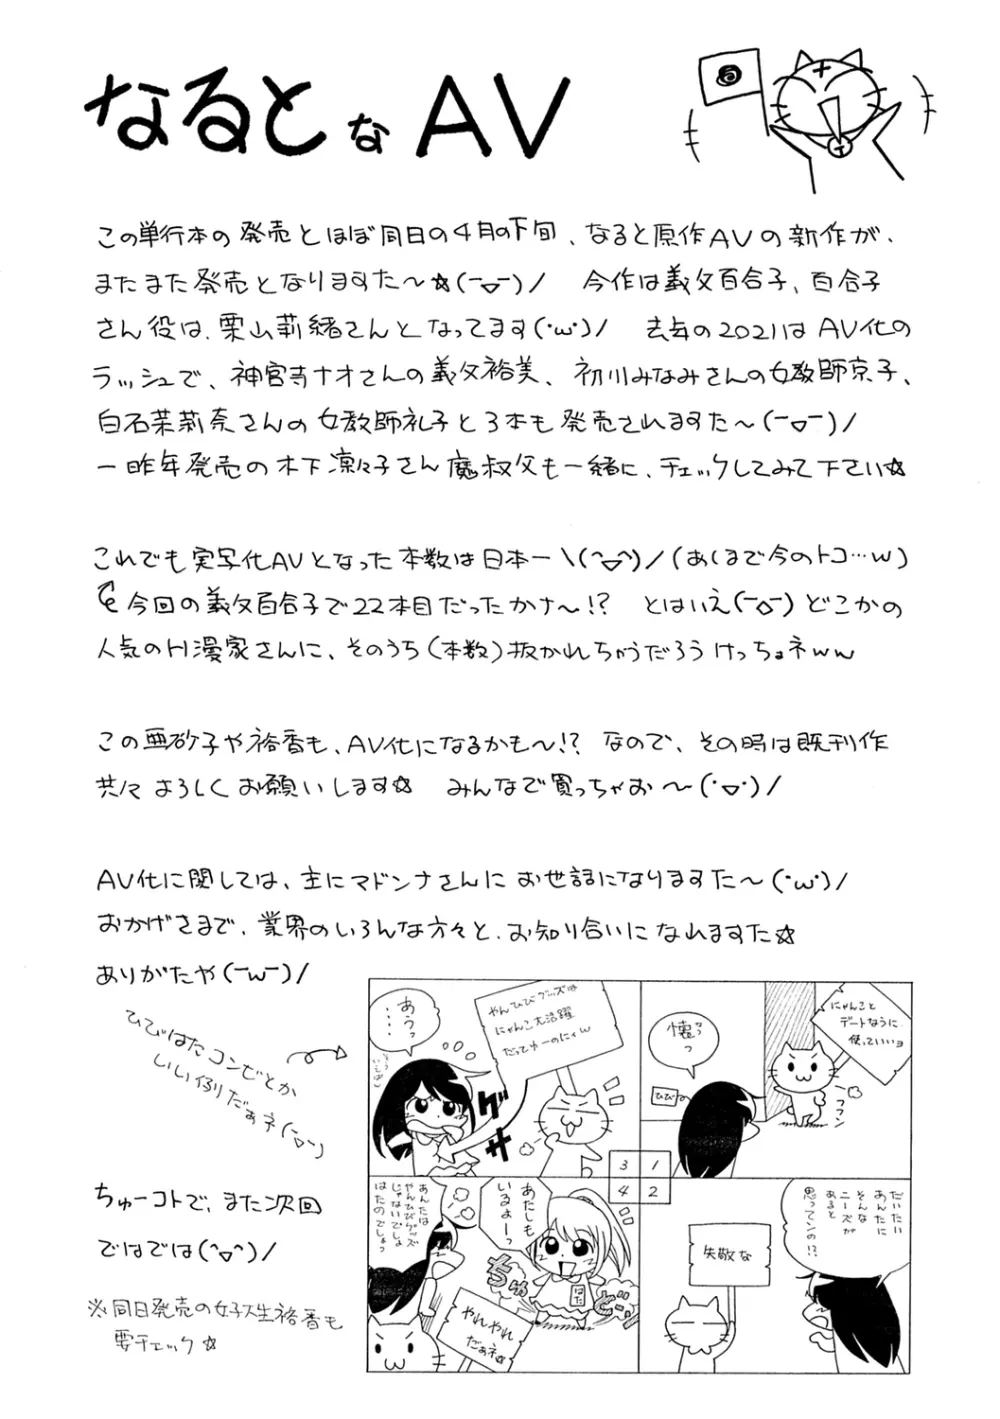 なるとなAV
この単行本の発売とほぼ同日の4月の下旬、なると原作AVの新作が、
またまた発売となりますた〜☆(ｰ▽ｰ)/ 今作は義父百合子、百合子
さん役は、栗山莉緒さんとなってます(･ω･)/ 去年の2021はAV化の
ラッシュで、神宮寺ナオさんの義父裕美、初川みなみさんの女教師京子、
白石茉莉奈さんの女教師礼子と3本も発売されますた〜(ｰ▽ｰ)/
一昨年発売の木下凛々子さん魔叔父も一緒に、チェックしてみて下さい☆
これでも実写化AVとなった本数は日本一\(^▽^)/(あくまで今のトコ…w)
今回の義父百合子で22本目だったかナ〜!? とはいえ(ｰ▽ｰ)どこかの
人気のH漫家さんに、そのうち(本数)抜かれちゃうだろうけっちょネww
この亜砂子や裕香も、AV化になるかも〜!? なので、その時は既刊作
共々よろしくお願いします☆ みんなで買っちゃお〜(･▽･)/
AV化に関しては、主にマドンナさんにお世話になりますた〜(･ω･)/
おかげさまで、業界のいろんな方々と、お知り合いになれますた☆
ありがたや(ｰωｰ)/
ひびはたコンビとか
いい例りだぁネ(ｰ▽ｰ)
ちゅーコトで、また次回
ではでは(^▽^)/
※同日発売の女子大生裕香も
要チェック☆
にゃんこと
デートなうに
使っていいヨ
懐っ
ひび
フフン
だいたい
あんたに
そんな
ニーズが
あると
思ってンの!?
失敬な
やんひびグッズは
にゃんこ大活躍
だってゆーのにィw
あうっ
‥‥
グサ
あたしも
いるよォーっ
はた
ちゅどーん
あんたは
やんひびグッズ
じゃないでしょ
はたのでしょっ
やれやれ
だぁネ☆
3 1
4 2